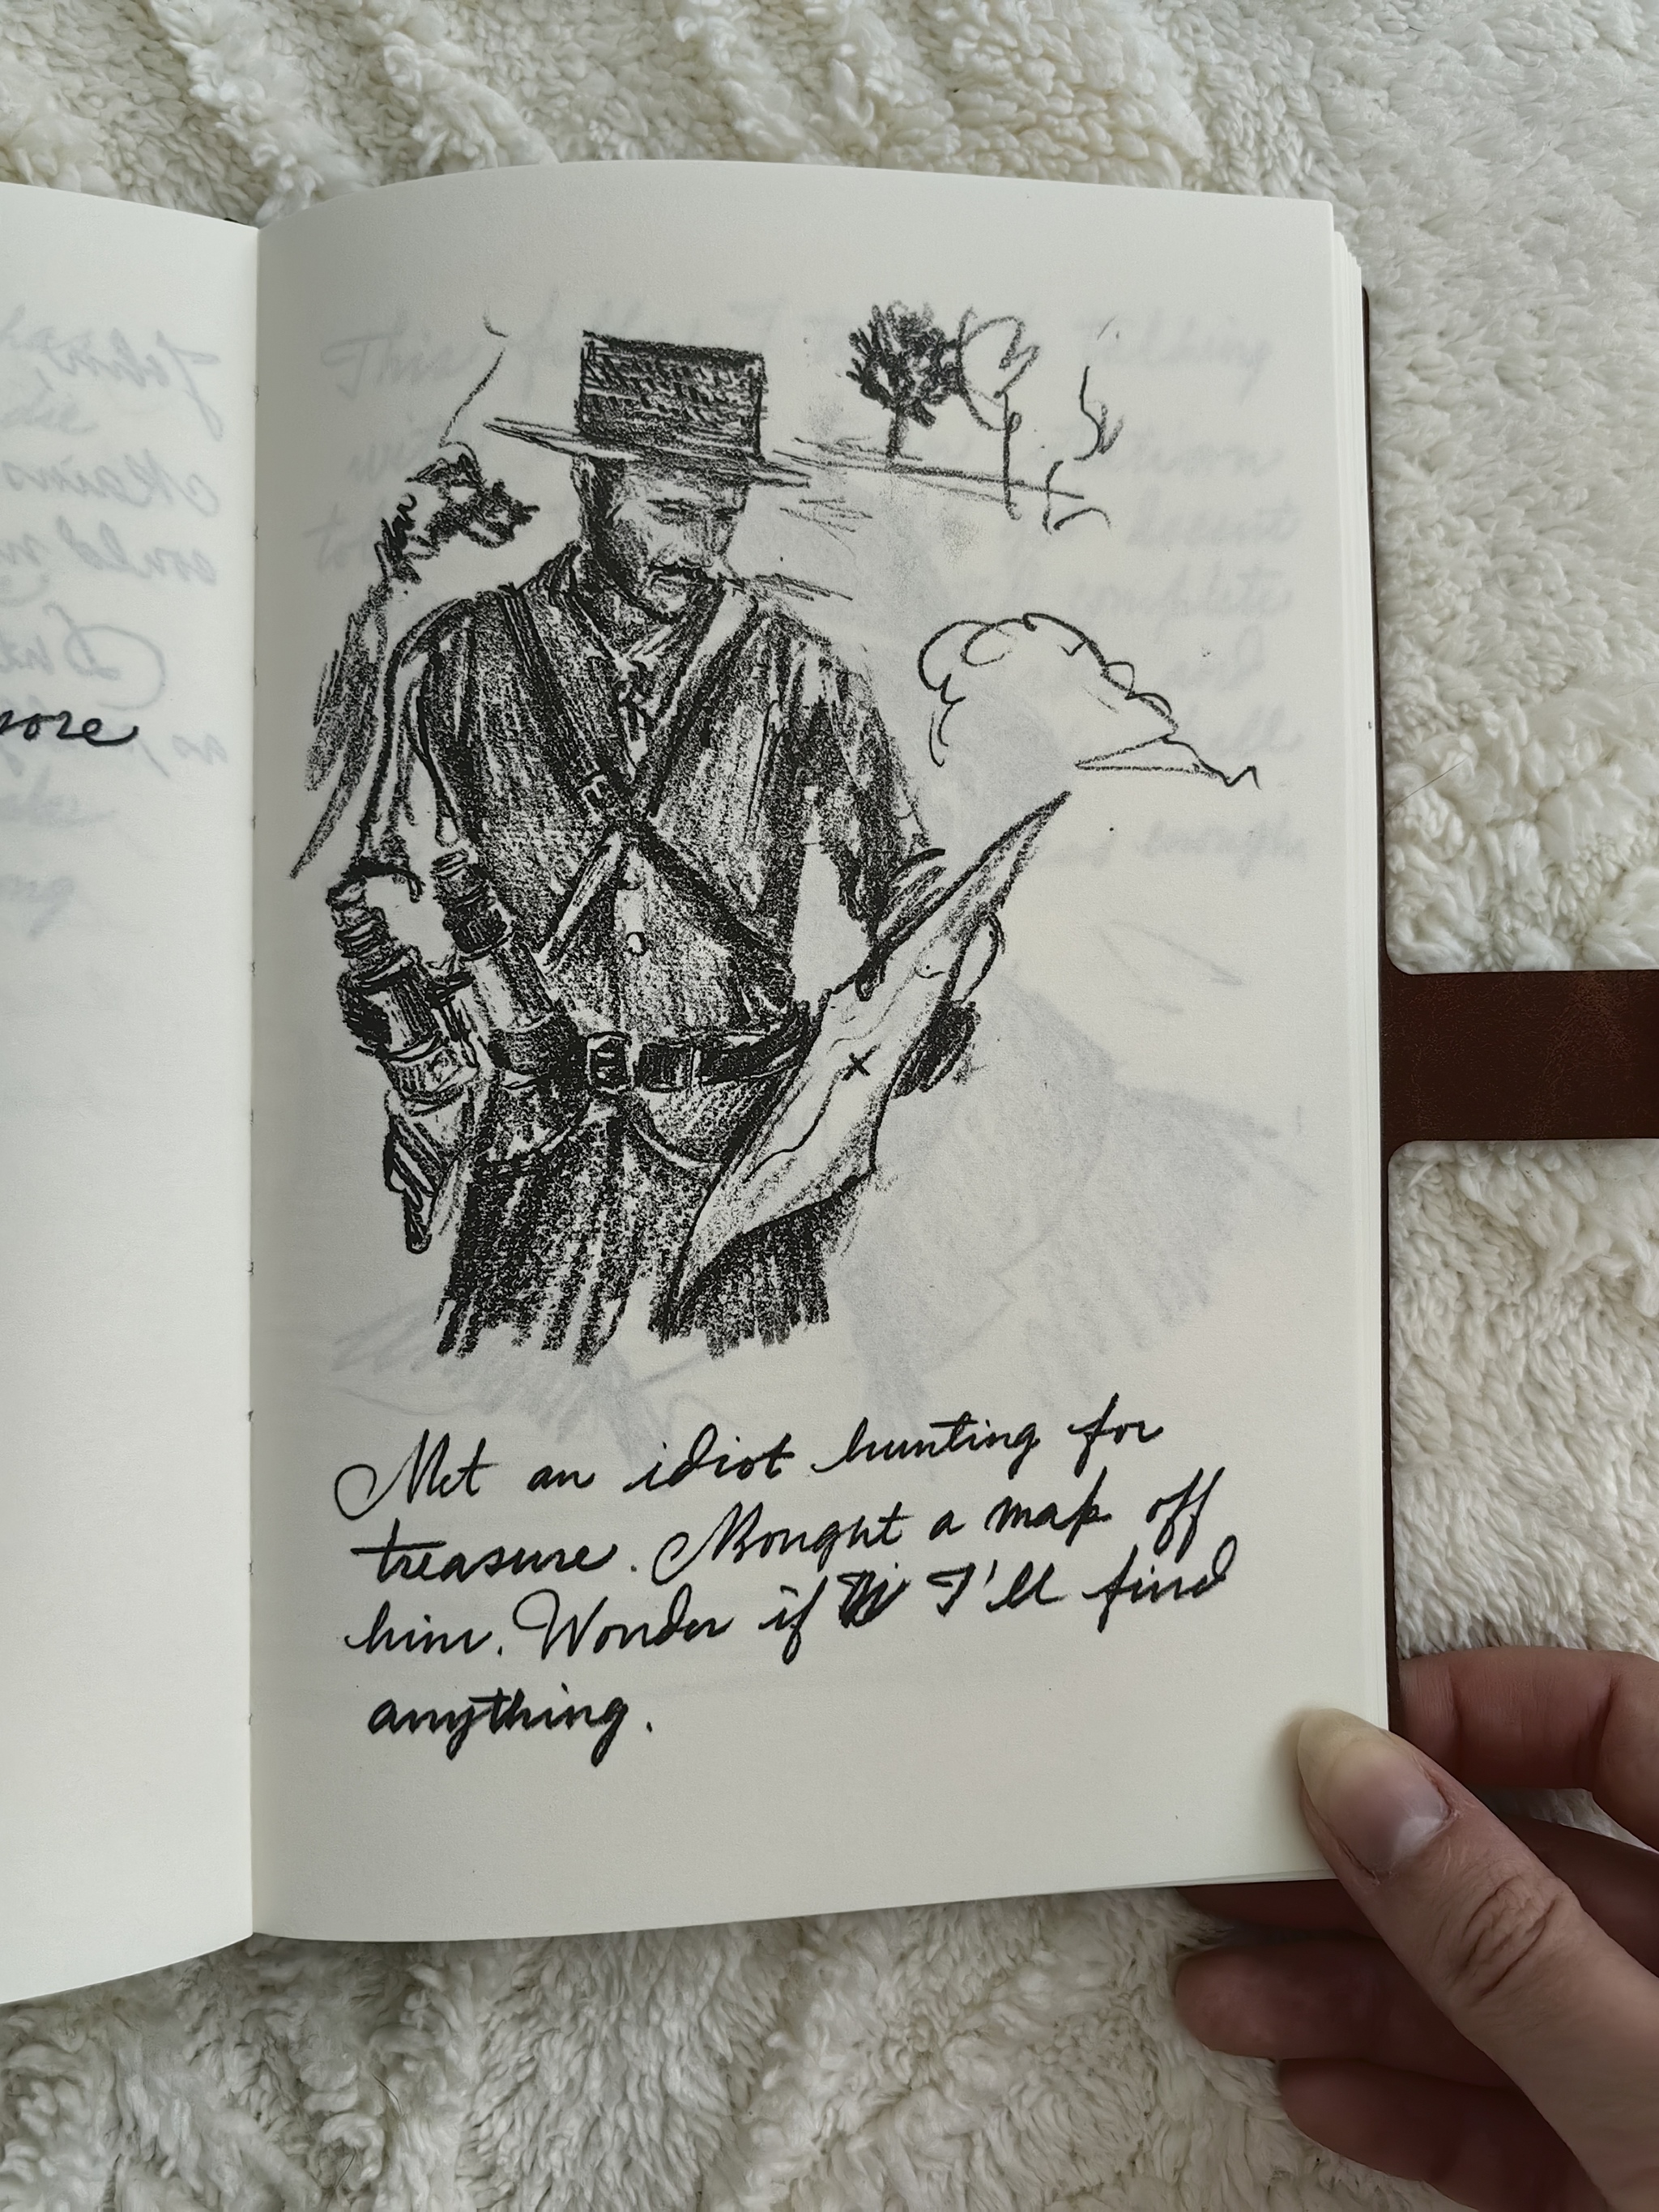 sore
Met an idiot hunting for
treasure. Bought a map off
him. Wonder if I'll find
anything.